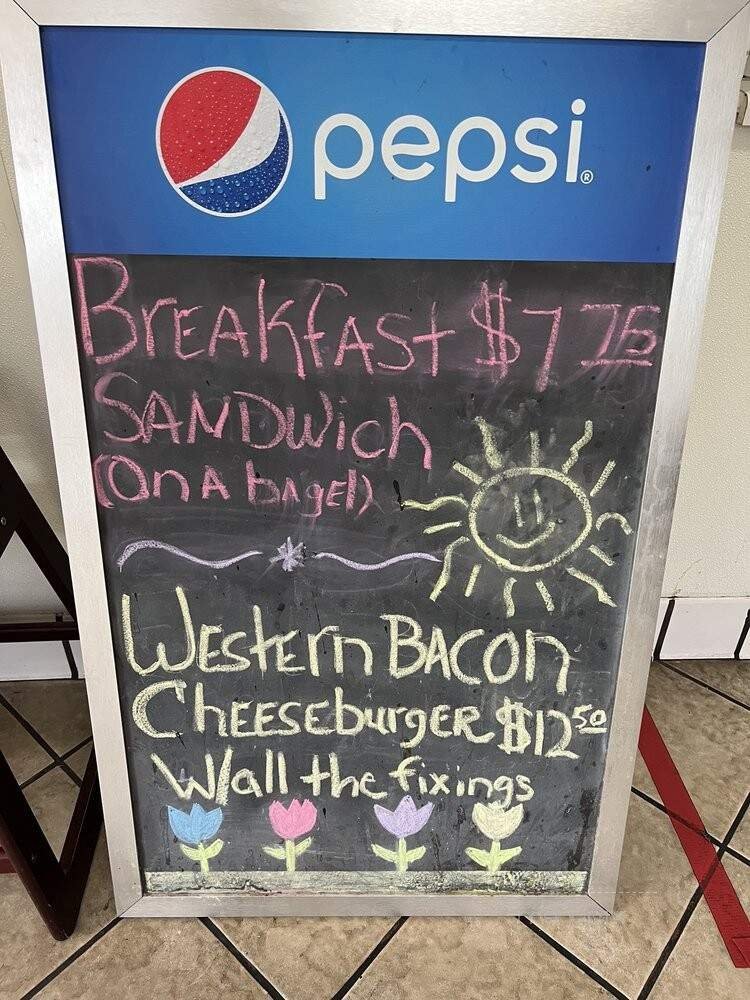 pepsi®
BREAKfAST $7 75
SANDwich
(On A bAgel)
WEstErn BACON
ChEESEburgER $12 50
W/all the fixings